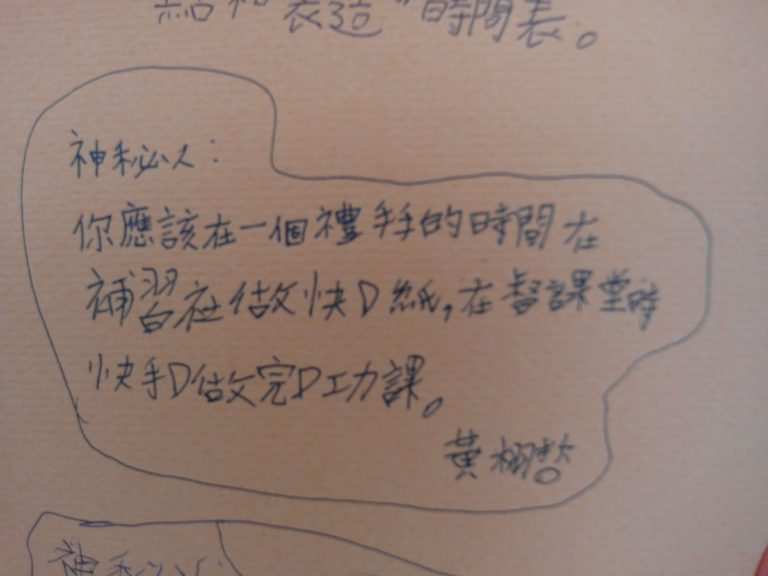 時間表。
神秘人：
你應該在一個禮手的時間在
補習社做快D紙,在督課堂時
快手D做完D功課。
黃
神秘人